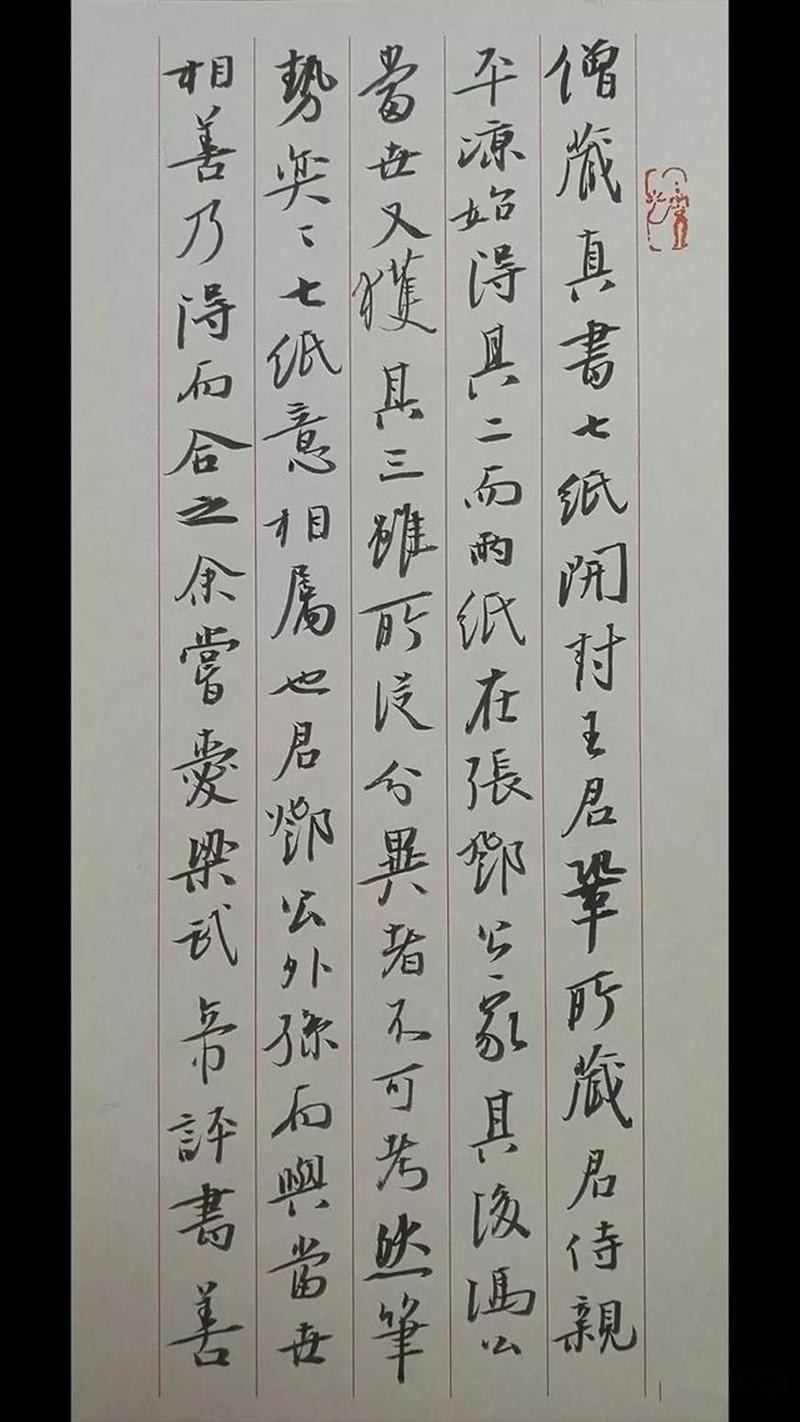 僧藏真書七紙開封王君鞏所藏君侍親
平凉始得其二而兩紙在張鄧公家其後馮公
當世又獲其三雖所從分異者不可考然筆
勢奕〻七紙意相屬也君鄧公外孫而與當世
相善乃得而合之余嘗愛梁武帝評書善